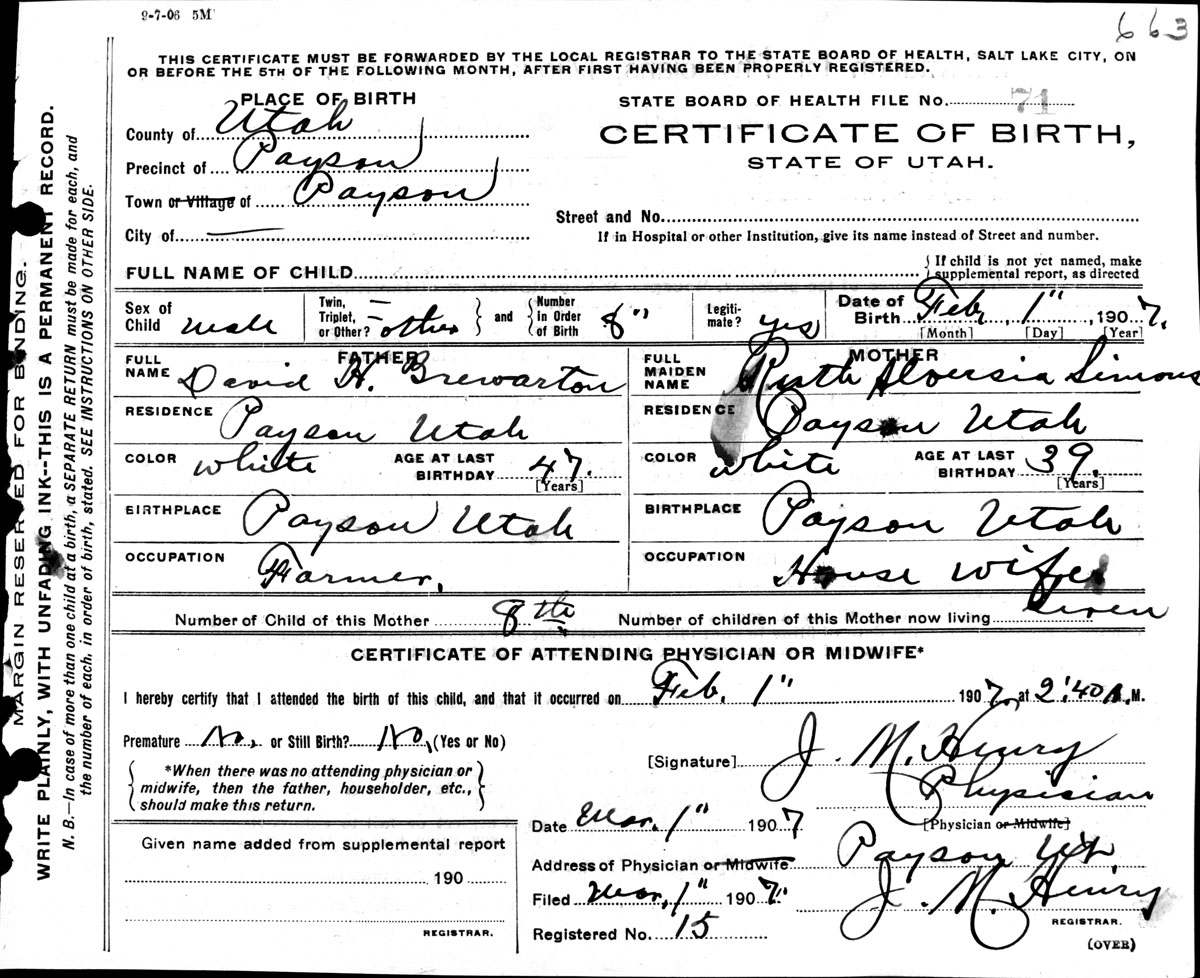 9-7-06 5M
663
THIS CERTIFICATE MUST BE FORWARDED BY THE LOCAL REGISTRAR TO THE STATE BOARD OF HEALTH, SALT LAKE CITY, ON
OR BEFORE THE 5TH OF THE FOLLOWING MONTH, AFTER FIRST HAVING BEEN PROPERLY REGISTERED.
PLACE OF BIRTH
County of Utah
Precinct of Payson
Town or Village of Payson
City of —
STATE BOARD OF HEALTH FILE No. 71
CERTIFICATE OF BIRTH,
STATE OF UTAH.
Street and No.
If in Hospital or other Institution, give its name instead of Street and number.
FULL NAME OF CHILD
{ If child is not yet named, make
supplemental report, as directed
Sex of Child male
Twin, — Triplet, — or Other? other } and { Number in Order of Birth 8"
Legitimate? yes
Date of Birth Feb, 1", 1907.
[Month] [Day] [Year]
FATHER
FULL NAME David H. Brewarton
RESIDENCE Payson Utah
COLOR white AGE AT LAST BIRTHDAY 47. [Years]
BIRTHPLACE Payson Utah
OCCUPATION Farmer.
MOTHER
FULL MAIDEN NAME Ruth Simons
RESIDENCE Payson Utah
COLOR white AGE AT LAST BIRTHDAY 39. [Years]
BIRTHPLACE Payson Utah
OCCUPATION House wife
Number of Child of this Mother 8th Number of children of this Mother now living Seven
CERTIFICATE OF ATTENDING PHYSICIAN OR MIDWIFE*
I hereby certify that I attended the birth of this child, and that it occurred on Feb. 1" 1907, at 2:40 A.M.
Premature No, or Still Birth? No, (Yes or No)
{ *When there was no attending physician or
midwife, then the father, householder, etc.,
should make this return. }
[Signature] J. M. Henry
Physician
[Physician or Midwife]
Date Mar. 1" 1907
Address of Physician or Midwife Payson Ut.
Filed Mar, 1" 1907. J. M. Henry
REGISTRAR.
Registered No. 15
(OVER)
Given name added from supplemental report
190
REGISTRAR.
MARGIN RESERVED FOR BINDING.
WRITE PLAINLY, WITH UNFADING INK--THIS IS A PERMANENT RECORD.
N. B.—In case of more than one child at a birth, a SEPARATE RETURN must be made for each, and
the number of each, in order of birth, stated. SEE INSTRUCTIONS ON OTHER SIDE.